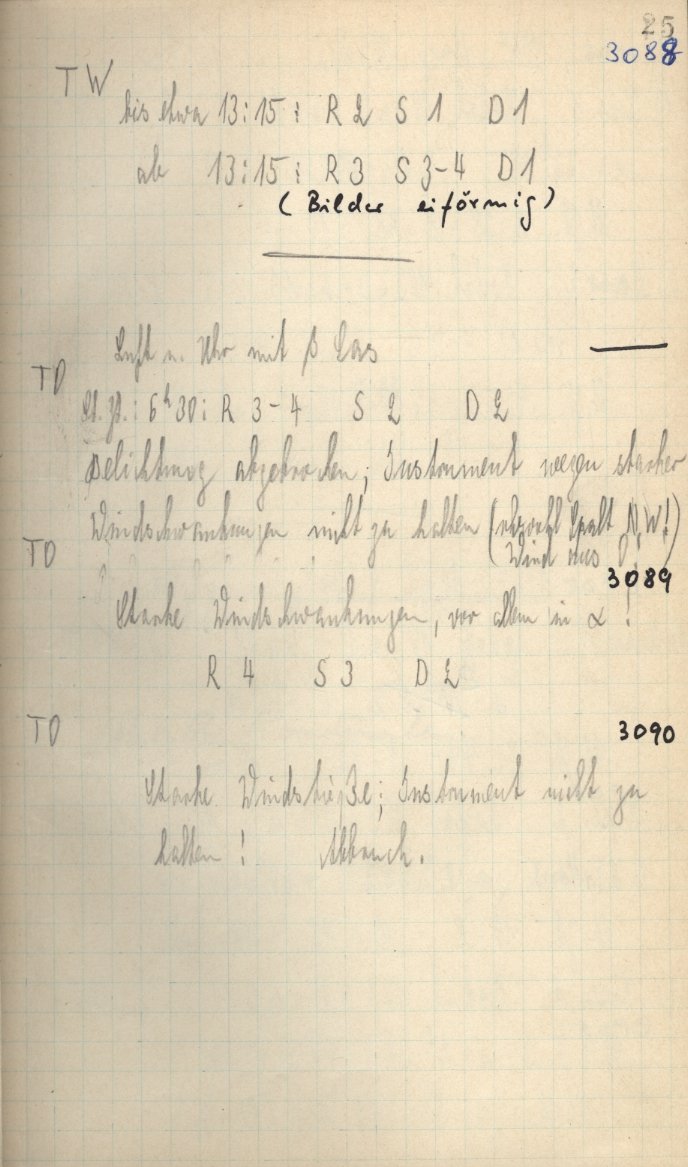 25
3088
TW
bis etwa 13:15: R 2 S 1 D 1
ab 13:15: R 3 S 3-4 D 1
(Bilder eiförmig)
Luft u. Uhr mit β Cas
TO
St. Zt.: 6h 30: R 3-4 S 2 D 2
Belichtung abgebrochen; Instrument wegen starker
Windschwankungen nicht zu halten (obwohl Spalt N,W!)
Wind aus O!
TO
3089
Starke Windschwankungen, vor allem in α!
R 4 S 3 D 2
TO
3090
Starke Windstöße; Instrument nicht zu
halten! Abbruch.